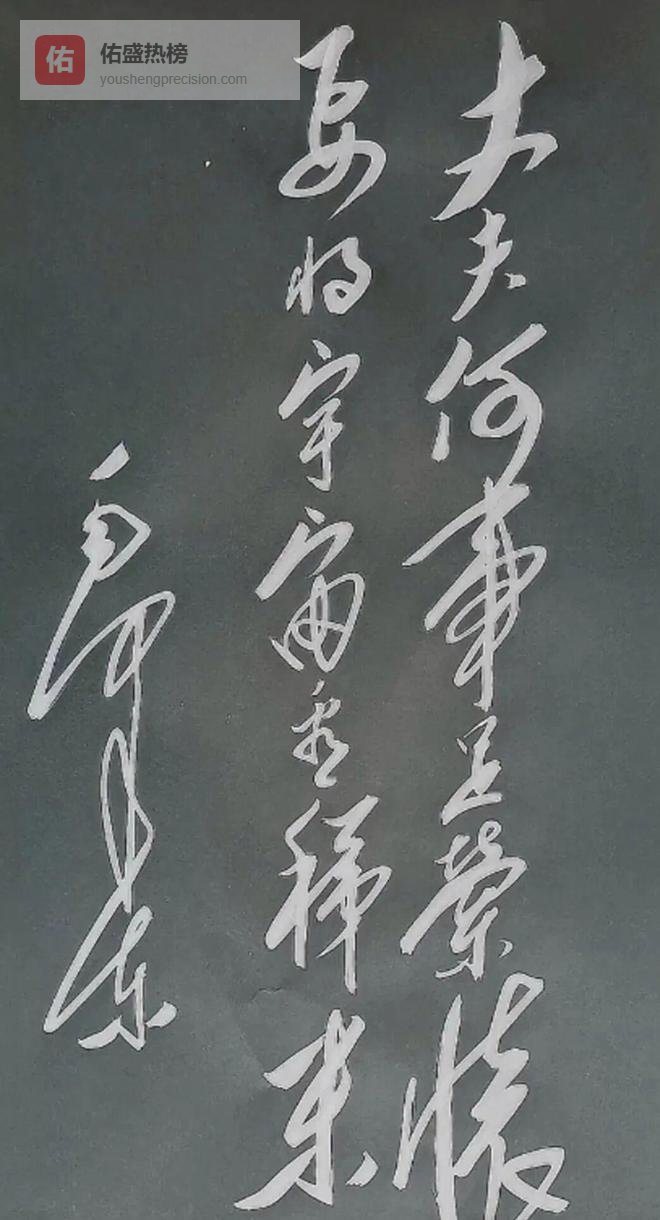 佑
佑盛热榜
youshengprecision.com
丈夫何事足萦怀
要将宇宙看稊米
毛泽东